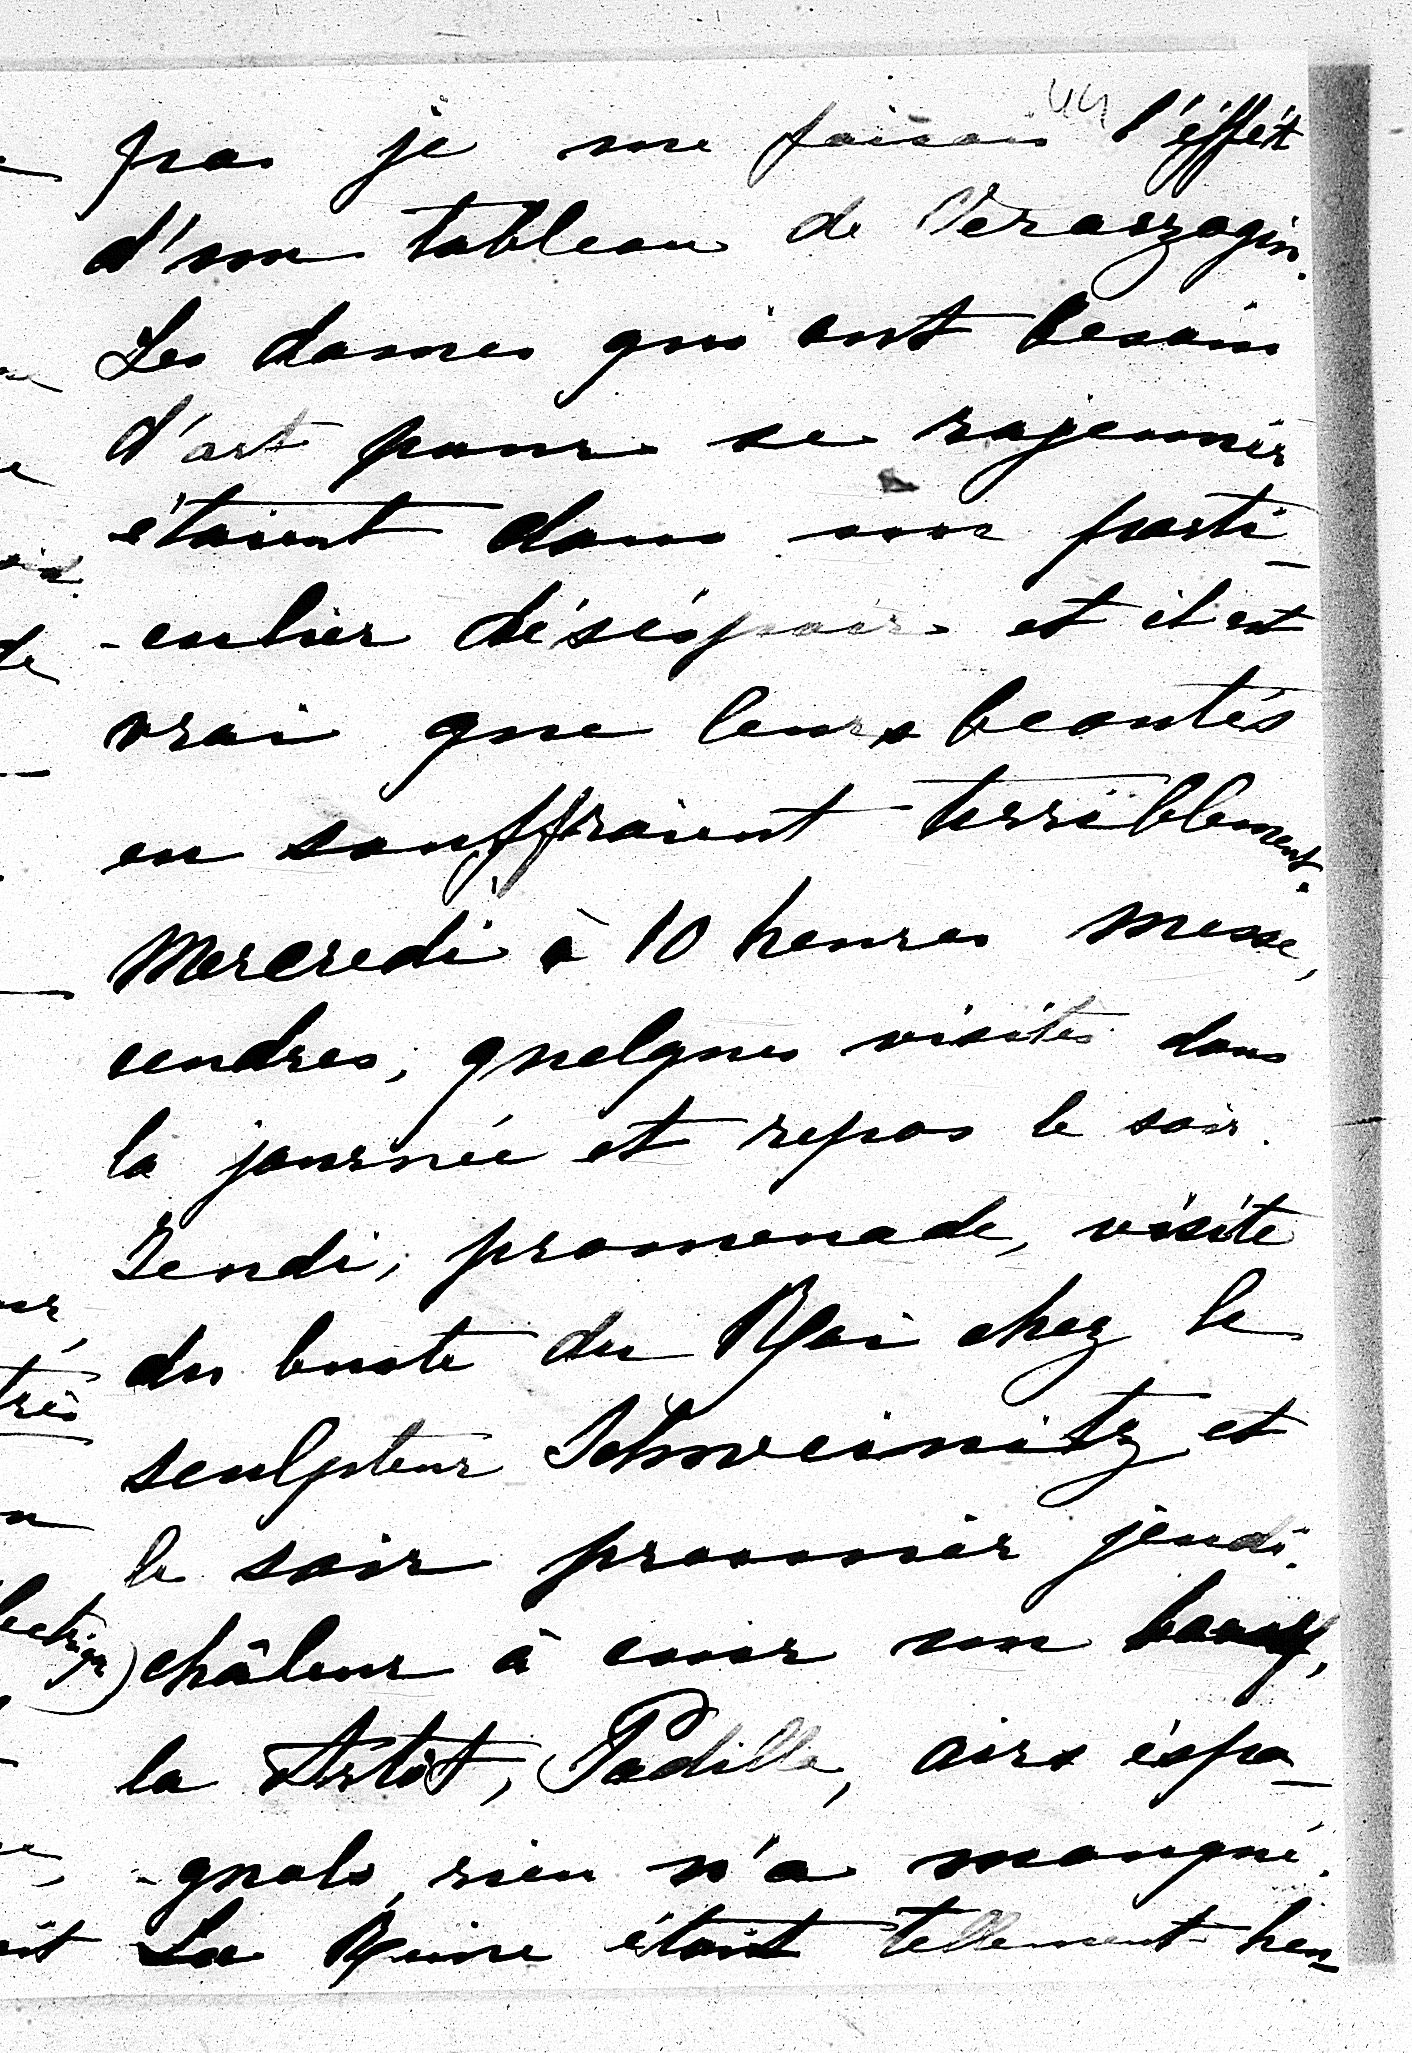 44
pas je me faisais l'éffét
d'un tableau de Veraszagin.
Les dames qui ont besoin
d'art pour se rajeunir
étaient dans un parti-
-culier déséspoir et il est
vrai que leurs beautés
en souffraient terriblement.
Mercredi à 10 heures messe,
cendres, quelques visites dans
la journée et repos le soir.
Jeudi, promenade, visite
du buste du Roi chez le
sculpteur Schweinitz et
le soir premier jeudi.
châleur à cuir un boeuf,
la Artôt, Padilla, airs éspa-
-gnols, rien n'a manqué.
La Reine était tellement heu-